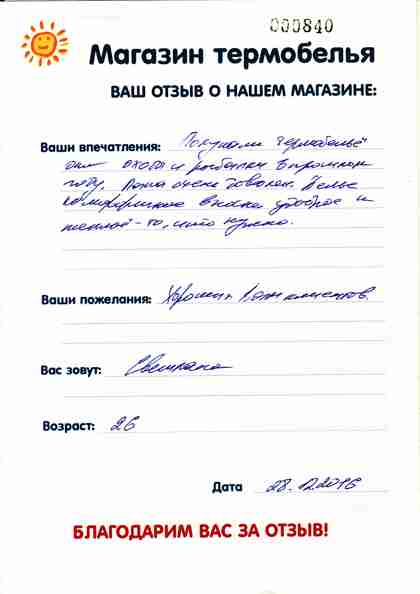 000840
Магазин термобелья
ВАШ ОТЗЫВ О НАШЕМ МАГАЗИНЕ:
Ваши впечатления: Покупали термобельё
для охоты и рыбалки в прошлом
году. Папа очень доволен. Белье
комфортное в носке удобное и
теплое - то, что нужно.
Ваши пожелания: Хороших Вам клиентов.
Вас зовут: Светлана
Возраст: 26
Дата 28.12.2016
БЛАГОДАРИМ ВАС ЗА ОТЗЫВ!